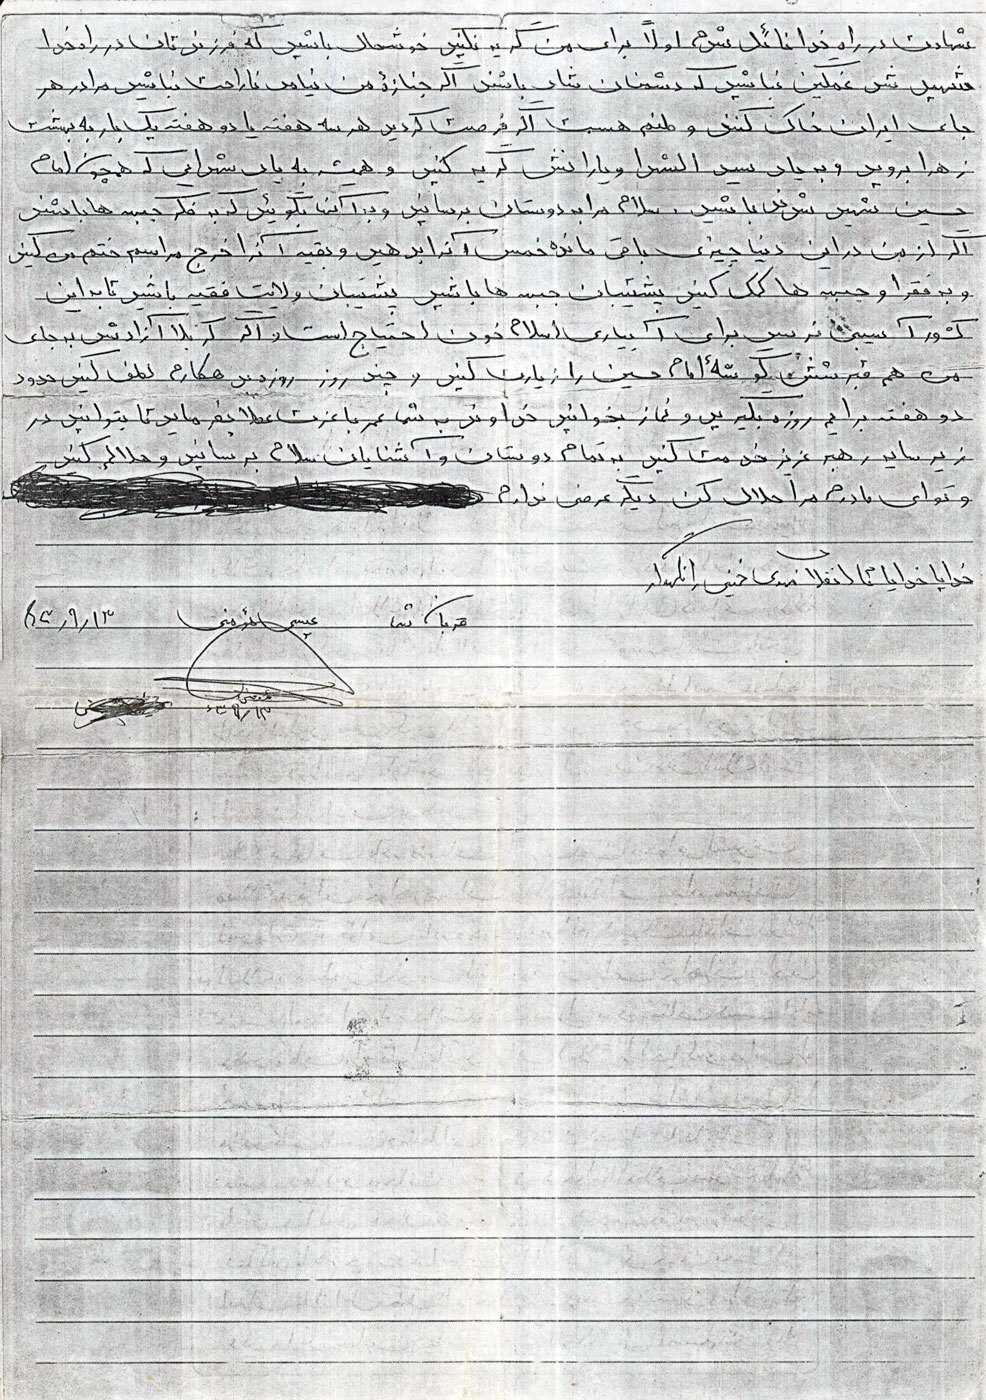 شهادت در راه خدا نائل شوم اولاً برای من گریه نکنید خوشحال باشید که فرزندتان در راه خدا
شهید شد غمگین نباشید که دشمنان شاد باشند اگر جنازهٔ من نیامد ناراحت نباشید مرا در هر
جای ایران خاک کنند وطنم هست اگر فرصت کردید هر سه هفته یا دو هفته یک بار به بهشت
زهرا بروید و به یاد سید الشهدا و یارانش گریه کنید و همیشه به یاد شهدایی که همچون امام
حسین شهید شدند باشید. سلام مرا به دوستان برسانید و به آنها بگوئید که به فکر جبهه ها باشند
اگر از من در این دنیا چیزی باقی مانده خمس آنرا بدهید و بقیه آنرا خرج مراسم ختم من کنید
و به فقرا و جبهه ها کمک کنید پشتیبان جبهه ها باشید پشتیبان ولایت فقیه باشید تا به این
کشور آسیبی نرسد برای آبیاری اسلام خون احتیاج است و اگر کربلا آزاد شد به جای
من هم قبر شش گوشهٔ امام حسین را زیارت کنید و چند روز روزه بدهکارم لطف کنید حدود
دو هفته برایم روزه بگیرید و نماز بخوانید خداوند به شما عمر با عزت عطا بفرماید تا بتوانید در
زیر سایه رهبر عزیز خدمت کنید به تمام دوستان و آشنایان سلام برسانید و حلالم کنید
و تو ای مادرم مرا حلال کن دیگر عرضی ندارم
خدایا خدایا تا انقلاب مهدی خمینی را نگهدار
قربان شما عیسی ۶۳/۹/۱۳
۶۳/۹/۱۳